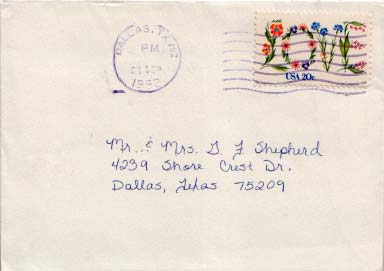 DALLAS, TX 752
PM
SEP
USA 20c
Mr. & Mrs. G F Shepherd
4239 Shore Crest Dr.
Dallas, Texas 75209